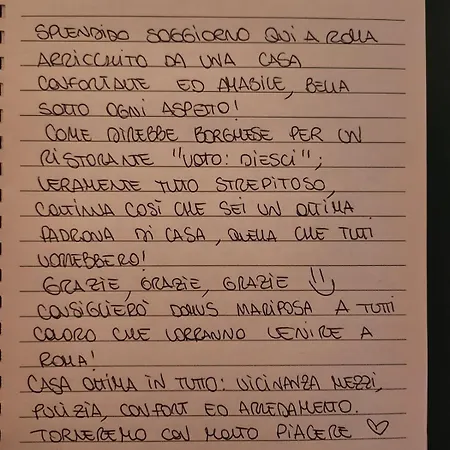 SPLENDIDO SOGGIORNO QUI A ROMA
ARRICCHITO DA UNA CASA
CONFORTANTE ED AMABILE, BELLA
SOTTO OGNI ASPETTO!
COME DIREBBE BORGHESE PER UN
RISTORANTE "VOTO: DIESCI";
VERAMENTE TUTTO STREPITOSO,
CONTINUA COSÌ CHE SEI UN OTTIMA
PADRONA DI CASA, QUELLA CHE TUTTI
VORREBBERO!
GRAZIE, GRAZIE, GRAZIE
CONSIGLIERÒ DOMUS MARIPOSA A TUTTI
COLORO CHE VORRANNO VENIRE A
ROMA!
CASA OTTIMA IN TUTTO: VICINANZA MEZZI,
PULIZIA, CONFORT ED ARREDAMENTO.
TORNEREMO CON MOLTO PIACERE